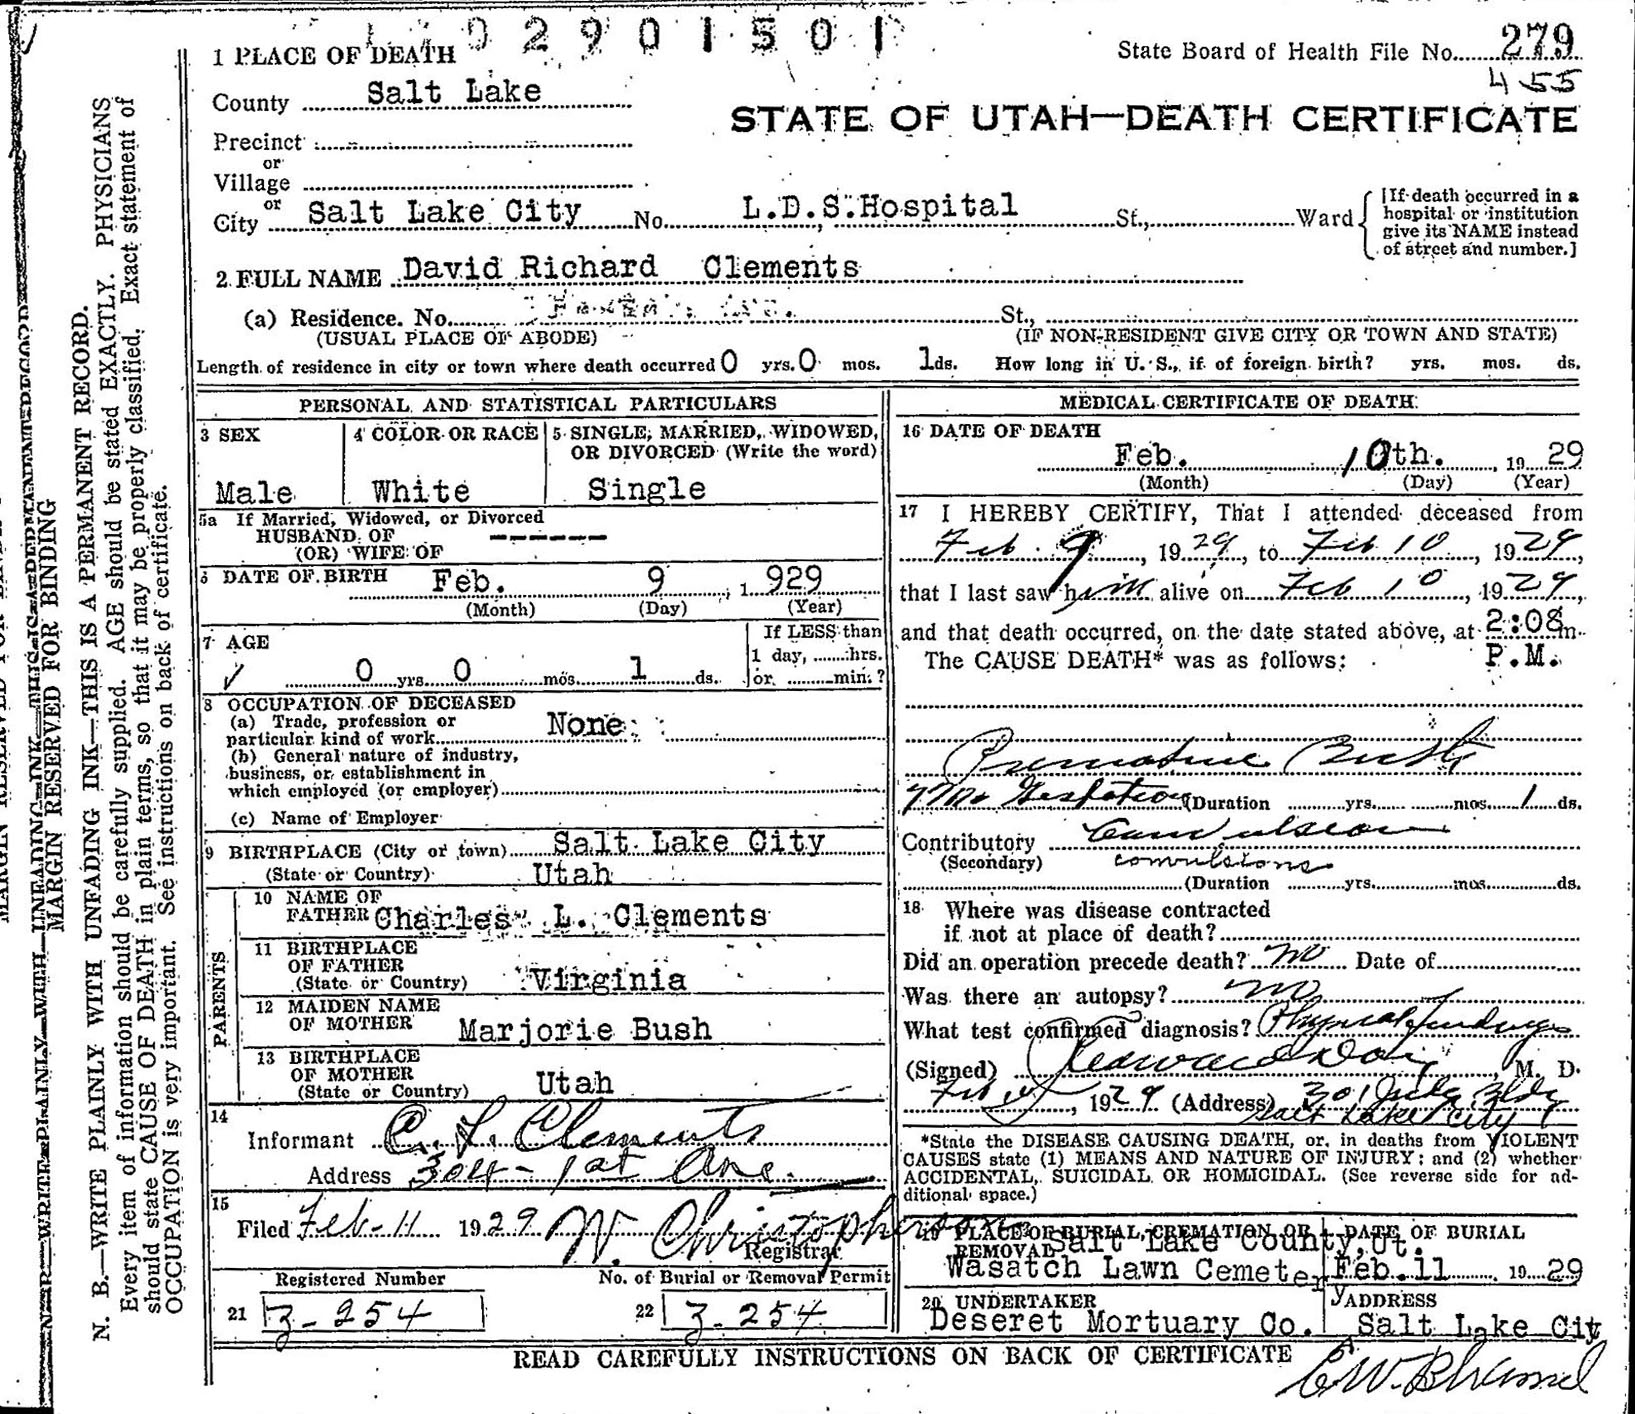 02901501
State Board of Health File No. 279
455
1 PLACE OF DEATH
County Salt Lake
STATE OF UTAH—DEATH CERTIFICATE
Precinct
or
Village
or
City Salt Lake City No. L.D.S.Hospital St., Ward
[If death occurred in a
hospital or institution
give its NAME instead
of street and number.]
2 FULL NAME David Richard Clements
(a) Residence. No. St.,
(USUAL PLACE OF ABODE) (IF NON-RESIDENT GIVE CITY OR TOWN AND STATE)
Length of residence in city or town where death occurred 0 yrs. 0 mos. 1 ds. How long in U. S., if of foreign birth? yrs. mos. ds.
PERSONAL AND STATISTICAL PARTICULARS
3 SEX 4 COLOR OR RACE 5 SINGLE, MARRIED, WIDOWED,
OR DIVORCED (Write the word)
Male White Single
5a If Married, Widowed, or Divorced
HUSBAND OF ------
(OR) WIFE OF
6 DATE OF BIRTH Feb. 9, 1929
(Month) (Day) (Year)
7 AGE If LESS than
1 day, ......hrs.
0 yrs 0 mos 1 ds. or ......min.?
8 OCCUPATION OF DECEASED
(a) Trade, profession or
particular kind of work None
(b) General nature of industry,
business, or establishment in
which employed (or employer)
(c) Name of Employer
9 BIRTHPLACE (City or town) Salt Lake City
(State or Country) Utah
PARENTS
10 NAME OF
FATHER Charles L. Clements
11 BIRTHPLACE
OF FATHER
(State or Country) Virginia
12 MAIDEN NAME
OF MOTHER Marjorie Bush
13 BIRTHPLACE
OF MOTHER
(State or Country) Utah
14
Informant C. L. Clements
Address 304 - 1st Ave.
15
Filed Feb-11 1929 W. Christopherson
Registrar
Registered Number No. of Burial or Removal Permit
21 3-254 22 3-254
MEDICAL CERTIFICATE OF DEATH
16 DATE OF DEATH
Feb. 10th., 1929
(Month) (Day) (Year)
17 I HEREBY CERTIFY, That I attended deceased from
Feb. 9, 1929, to Feb 10, 1929
that I last saw him alive on Feb 10, 1929,
and that death occurred, on the date stated above, at 2:08 m.
The CAUSE DEATH* was as follows: P.M.
Premature Birth
7 Mo Gestation (Duration yrs. mos 1 ds.
Contributory Convulsion
(Secondary) convulsions
(Duration yrs. mos ds.
18 Where was disease contracted
if not at place of death?
Did an operation precede death? no Date of
Was there an autopsy? no
What test confirmed diagnosis? Physical findings
(Signed) M. D.
Feb, 1929 (Address) 301 Bldg
Salt Lake City
*State the DISEASE CAUSING DEATH, or, in deaths from VIOLENT
CAUSES state (1) MEANS AND NATURE OF INJURY; and (2) whether
ACCIDENTAL, SUICIDAL OR HOMICIDAL. (See reverse side for ad-
ditional space.)
19 PLACE OF BURIAL, CREMATION OR DATE OF BURIAL
REMOVAL Salt Lake County, Ut.
Wasatch Lawn Cemetery Feb. 11 1929
20 UNDERTAKER ADDRESS
Deseret Mortuary Co. Salt Lake City
READ CAREFULLY INSTRUCTIONS ON BACK OF CERTIFICATE
MARGIN RESERVED FOR BINDING
N. B.—WRITE PLAINLY WITH UNFADING INK—THIS IS A PERMANENT RECORD.
Every item of information should be carefully supplied. AGE should be stated EXACTLY. PHYSICIANS
should state CAUSE OF DEATH in plain terms, so that it may be properly classified. Exact statement of
OCCUPATION is very important. See instructions on back of certificate.